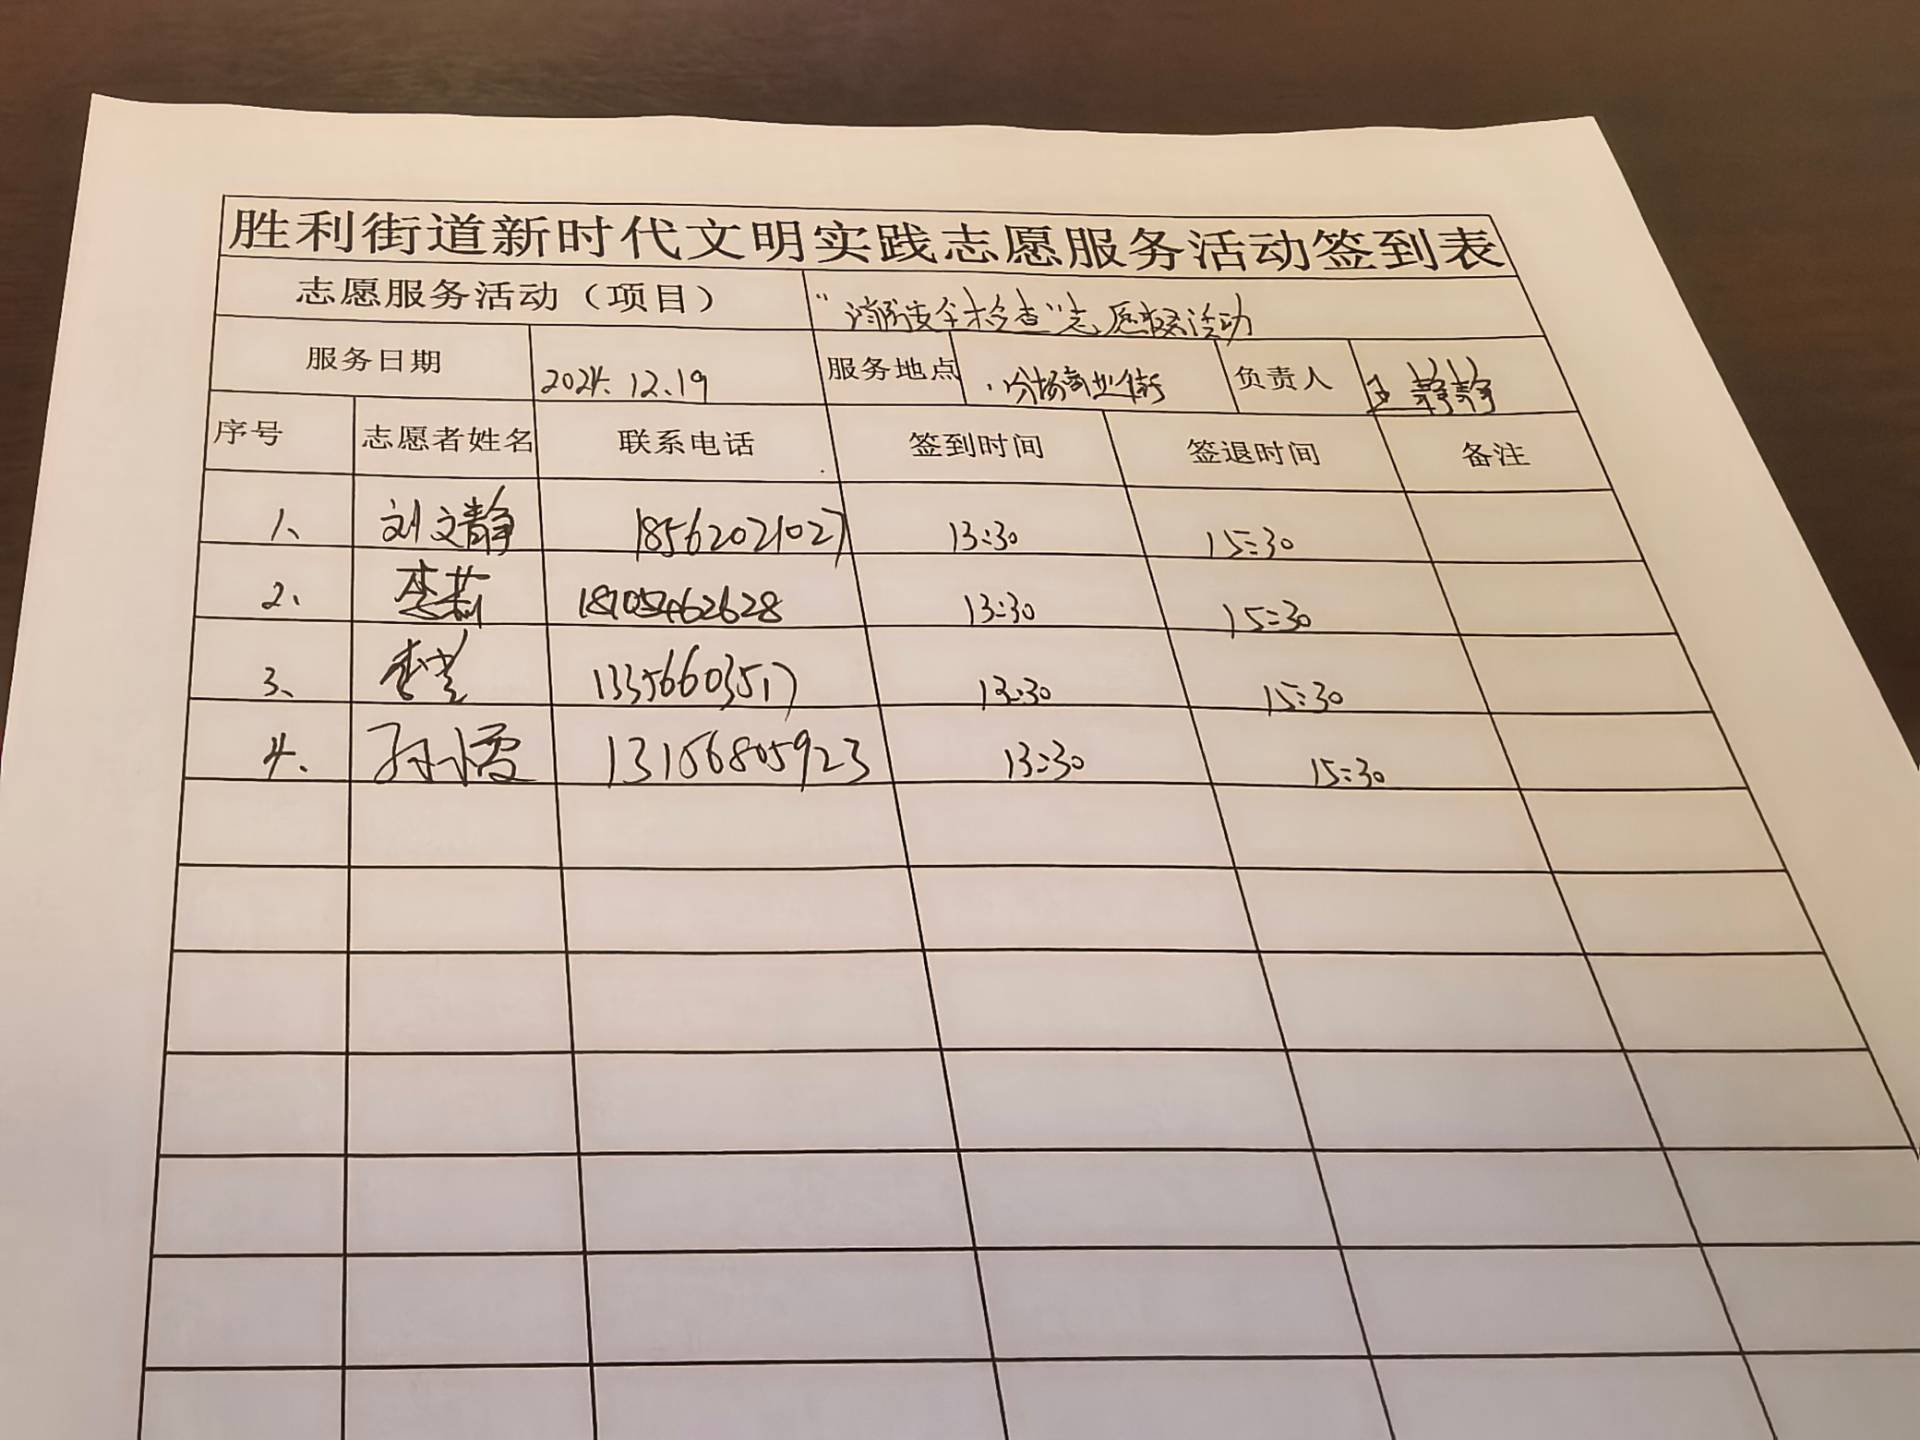 胜利街道新时代文明实践志愿服务活动签到表
志愿服务活动（项目） “消防安全检查”志愿服务活动
服务日期 2024.12.19 服务地点 商业街 负责人 王静静
序号 志愿者姓名 联系电话 签到时间 签退时间 备注
1、 刘文静 18562021027 13:30 15:30
2、 李莉 13:30 15:30
3、 李 13356603517 13:30 15:30
4、 孙小霞 13156805923 13:30 15:30